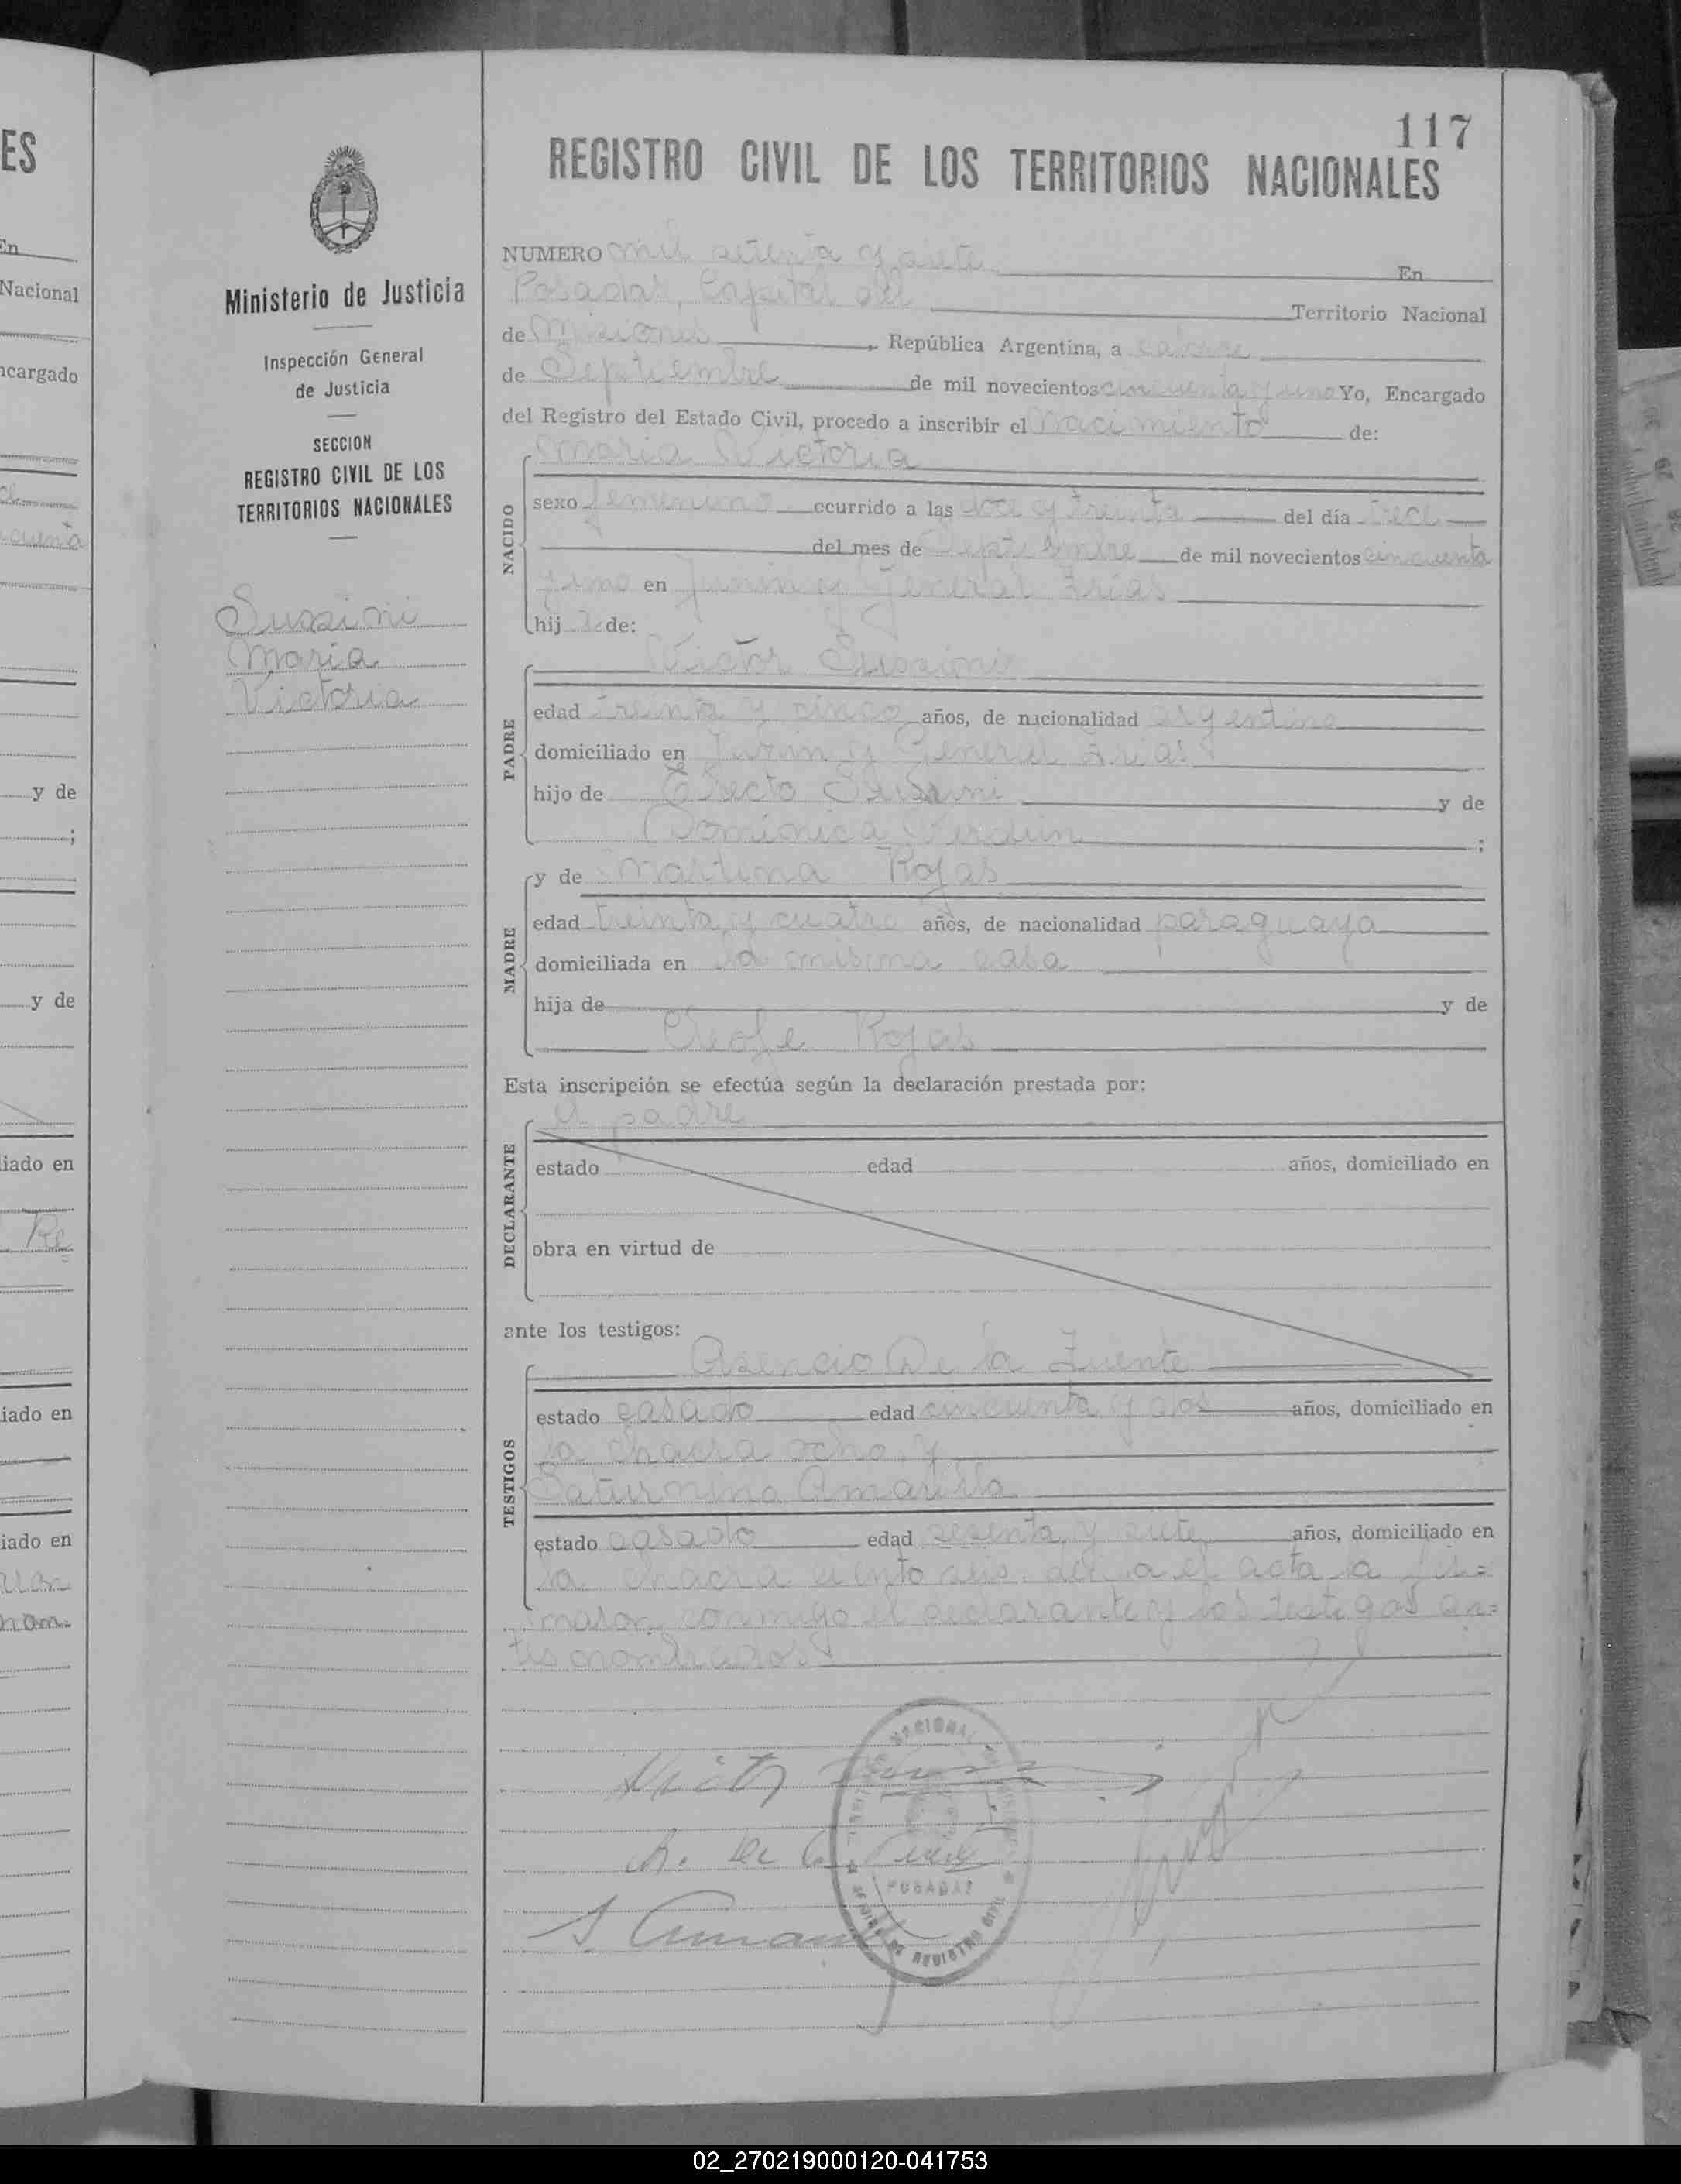 117
REGISTRO CIVIL DE LOS TERRITORIOS NACIONALES
Ministerio de Justicia
Inspección General
de Justicia
SECCION
REGISTRO CIVIL DE LOS
TERRITORIOS NACIONALES
Sussini
Maria
Victoria
NUMERO mil setenta y siete En
Posadas, Capital del Territorio Nacional
de Misiones, República Argentina, a catorce
de Septiembre de mil novecientos cincuenta y uno Yo, Encargado
del Registro del Estado Civil, procedo a inscribir el nacimiento de:
Maria Victoria
NACIDO
sexo femenino ocurrido a las doce y treinta del día trece
del mes de Septiembre de mil novecientos cincuenta
y uno en Junin y General Frias
hija de:
Victor Sussini
PADRE
edad treinta y cinco años, de nacionalidad argentina
domiciliado en Junin y General Frias
hijo de Sussini y de
Dominica Verdun ;
y de Martina Rojas
MADRE
edad treinta y cuatro años, de nacionalidad paraguaya
domiciliada en la misma casa
hija de y de
Cleofe Rojas
Esta inscripción se efectúa según la declaración prestada por:
el padre
DECLARANTE
estado edad años, domiciliado en
obra en virtud de
ante los testigos:
Asencio De la Fuente
TESTIGOS
estado casado edad cincuenta y dos años, domiciliado en
la chacra ocho, y
Saturnino Amarilla
estado casado edad sesenta y siete años, domiciliado en
la chacra ciento seis. Leida el acta la fir=
maron conmigo el declarante y los testigos an=
tes nombrados
Victor
A. de la Fuente
S. Amarilla
NACIONAL
POSADAS
REGISTRO CIVIL
ES
En
Nacional
ncargado
y de
;
y de
iado en
Re
iado en
iado en
02_270219000120-041753